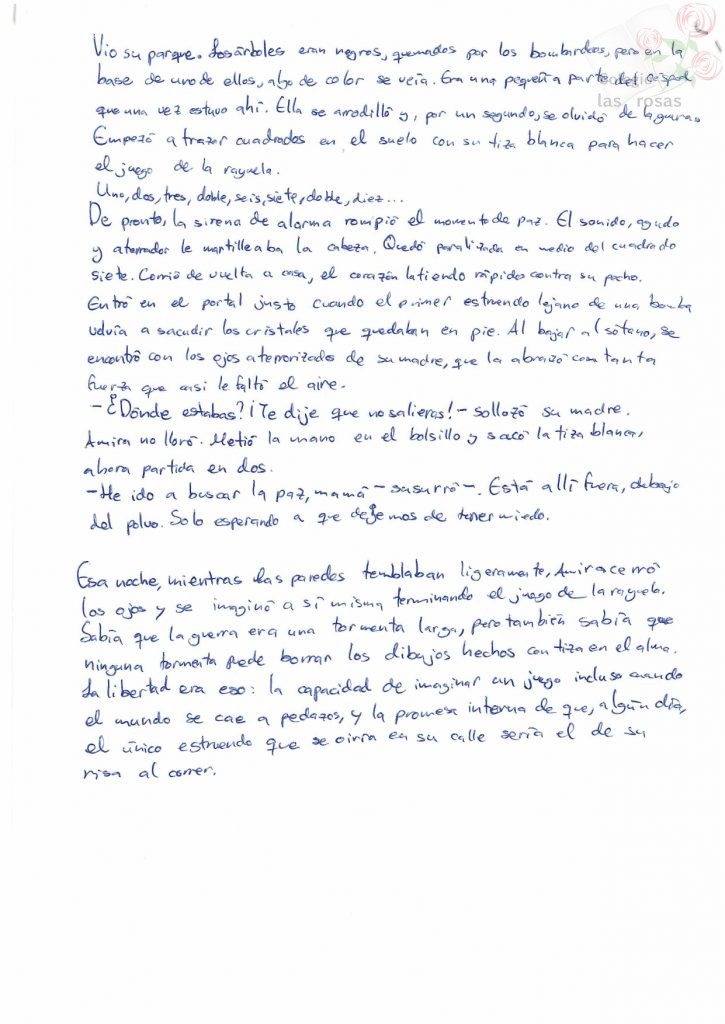 Vio su parque. Los árboles eran negros, quemados por los bombardeos, pero en la
base de uno de ellos, algo de color se veía. Era una pequeña parte del césped
que una vez estuvo ahí. Ella se arrodilló y, por un segundo, se olvidó de la guerra.
las rosas
Empezó a trazar cuadrados en el suelo con su tiza blanca para hacer
el juego de la rayuela.
Uno, dos, tres, doble, seis, siete, doble, diez...
De pronto, la sirena de alarma rompió el momento de paz. El sonido, agudo
y aterrador le martilleaba la cabeza. Quedó paralizada en medio del cuadrado
siete. Corrió de vuelta a casa, el corazón latiendo rápido contra su pecho.
Entró en el portal justo cuando el primer estruendo lejano de una bomba
volvía a sacudir los cristales que quedaban en pie. Al bajar al sótano, se
encontró con los ojos aterrorizados de su madre, que la abrazó con tanta
fuerza que casi le faltó el aire.
-¿Dónde estabas? ¡Te dije que no salieras! - sollozó su madre.
Amira no lloró. Metió la mano en el bolsillo y sacó la tiza blanca,
ahora partida en dos.
-He ido a buscar la paz, mamá - susurró -. Está allí fuera, debajo
del polvo. Solo esperando a que dejemos de tener miedo.
Esa noche, mientras las paredes temblaban ligeramente, Amira cerró
los ojos y se imaginó a sí misma terminando el juego de la rayuela.
Sabía que la guerra era una tormenta larga, pero también sabía que
ninguna tormenta puede borrar los dibujos hechos con tiza en el alma.
La libertad era eso: la capacidad de imaginar un juego incluso cuando
el mundo se cae a pedazos, y la promesa interna de que, algún día,
el único estruendo que se oiría en su calle sería el de su
risa al correr.